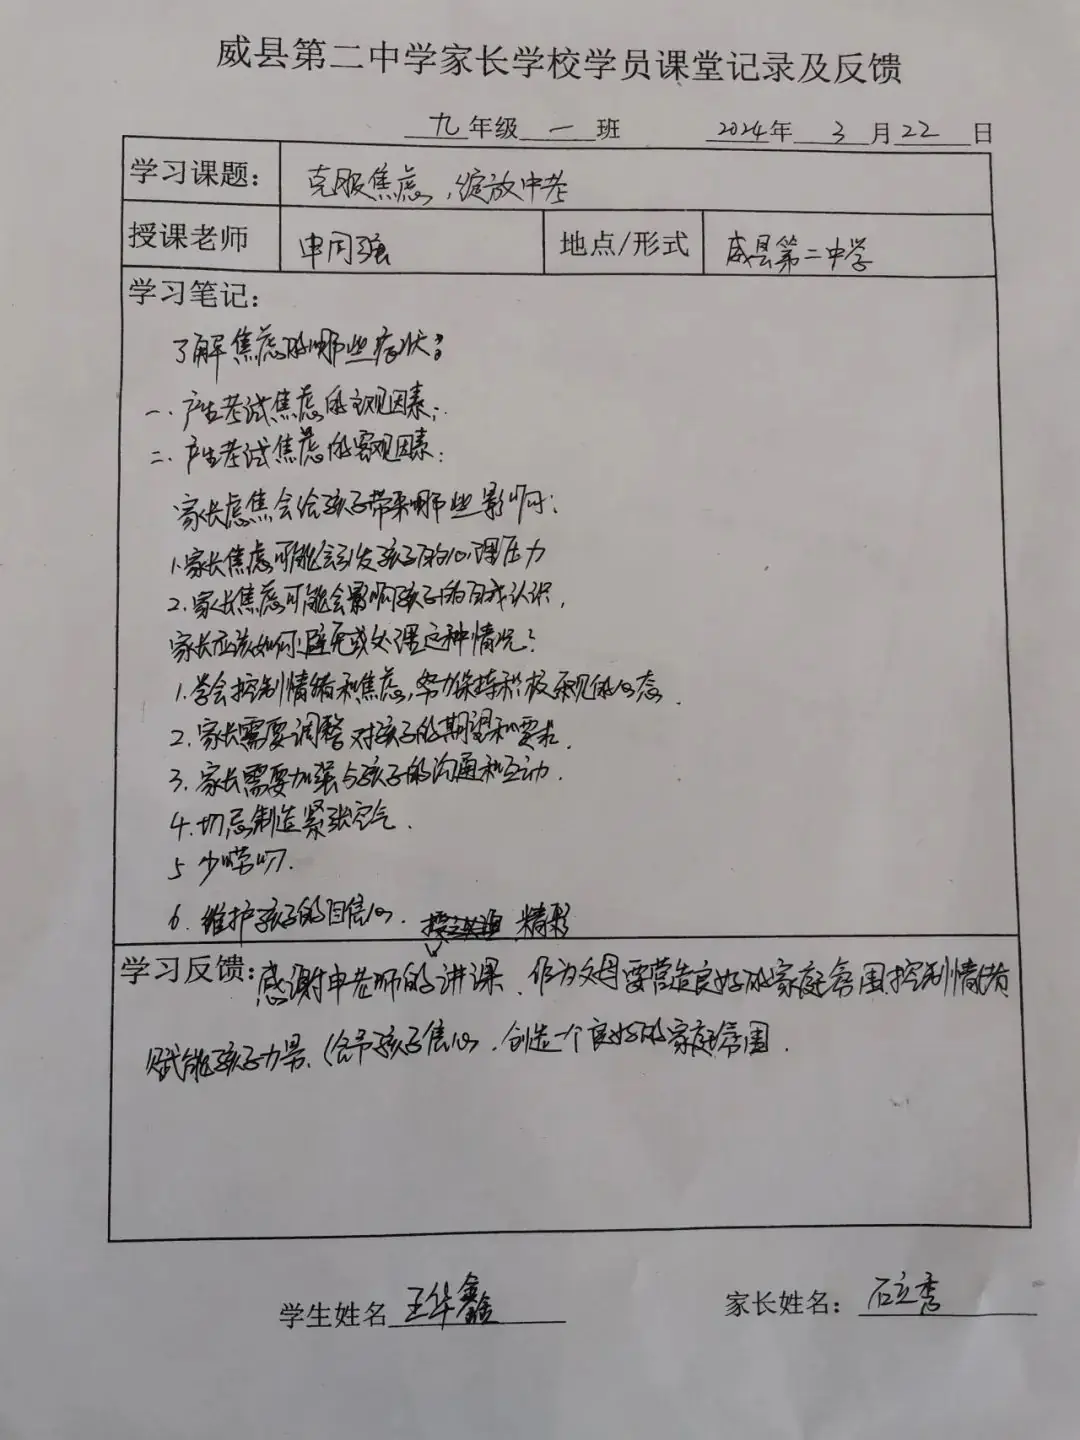 威县第二中学家长学校学员课堂记录及反馈
九年级一班 2024年3月22日
学习课题： 克服焦虑，绽放中考
授课老师 申同强 地点/形式 威县第二中学
学习笔记：
了解焦虑的哪些症状：
一、产生考试焦虑的主观因素：
二、产生考试焦虑的客观因素：
家长虑焦会给孩子带来哪些影响：
1.家长焦虑可能会引发孩子的心理压力
2.家长焦虑可能会影响孩子的自我认识，
家长应该如何避免或处理这种情况？
1.学会控制情绪和焦虑，努力保持积极乐观的心态．
2.家长需要调整对孩子的期望和要求．
3.家长需要加强与孩子的沟通和互动．
4.切忌制造紧张空气．
5 少唠叨．
6.维护孩子的自信心．
精彩
学习反馈：感谢申老师的讲课、作为父母要营造良好的家庭氛围控制情绪
赋能孩子力量、给予孩子信心，创造一个良好的家庭氛围．
学生姓名 王华鑫 家长姓名：石立秀